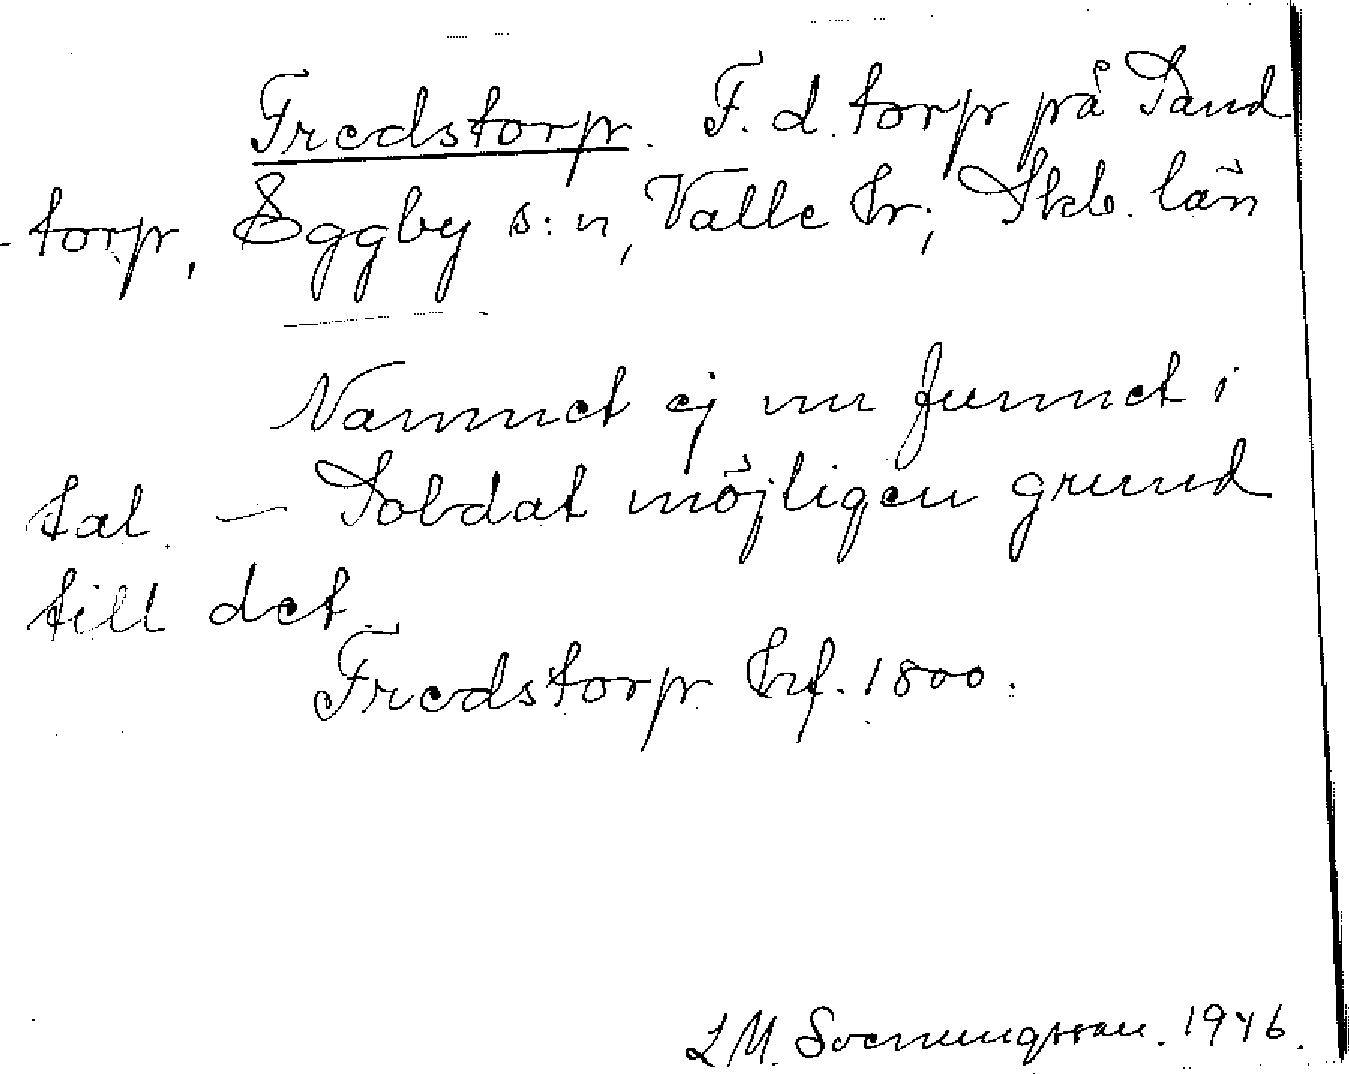 Fredstorp. F. d. torp på Sand
-torp, Eggby s:n, Valle hr; Skb. län
Namnet ej nu funnet i
tal. – Soldat möjligen grund
till det.
Fredstorp hrf. 1800.
L M. Svenungsson. 1946.